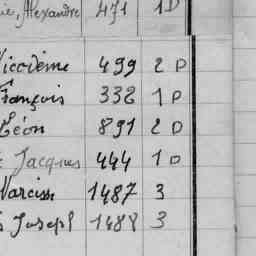 ie, Alexandre 471 1 D
Nicodème 499 2 D
François 332 1 D
Léon 891 2 D
Jacques 444 1 D
Narcisse 1487 3
Joseph 1488 3